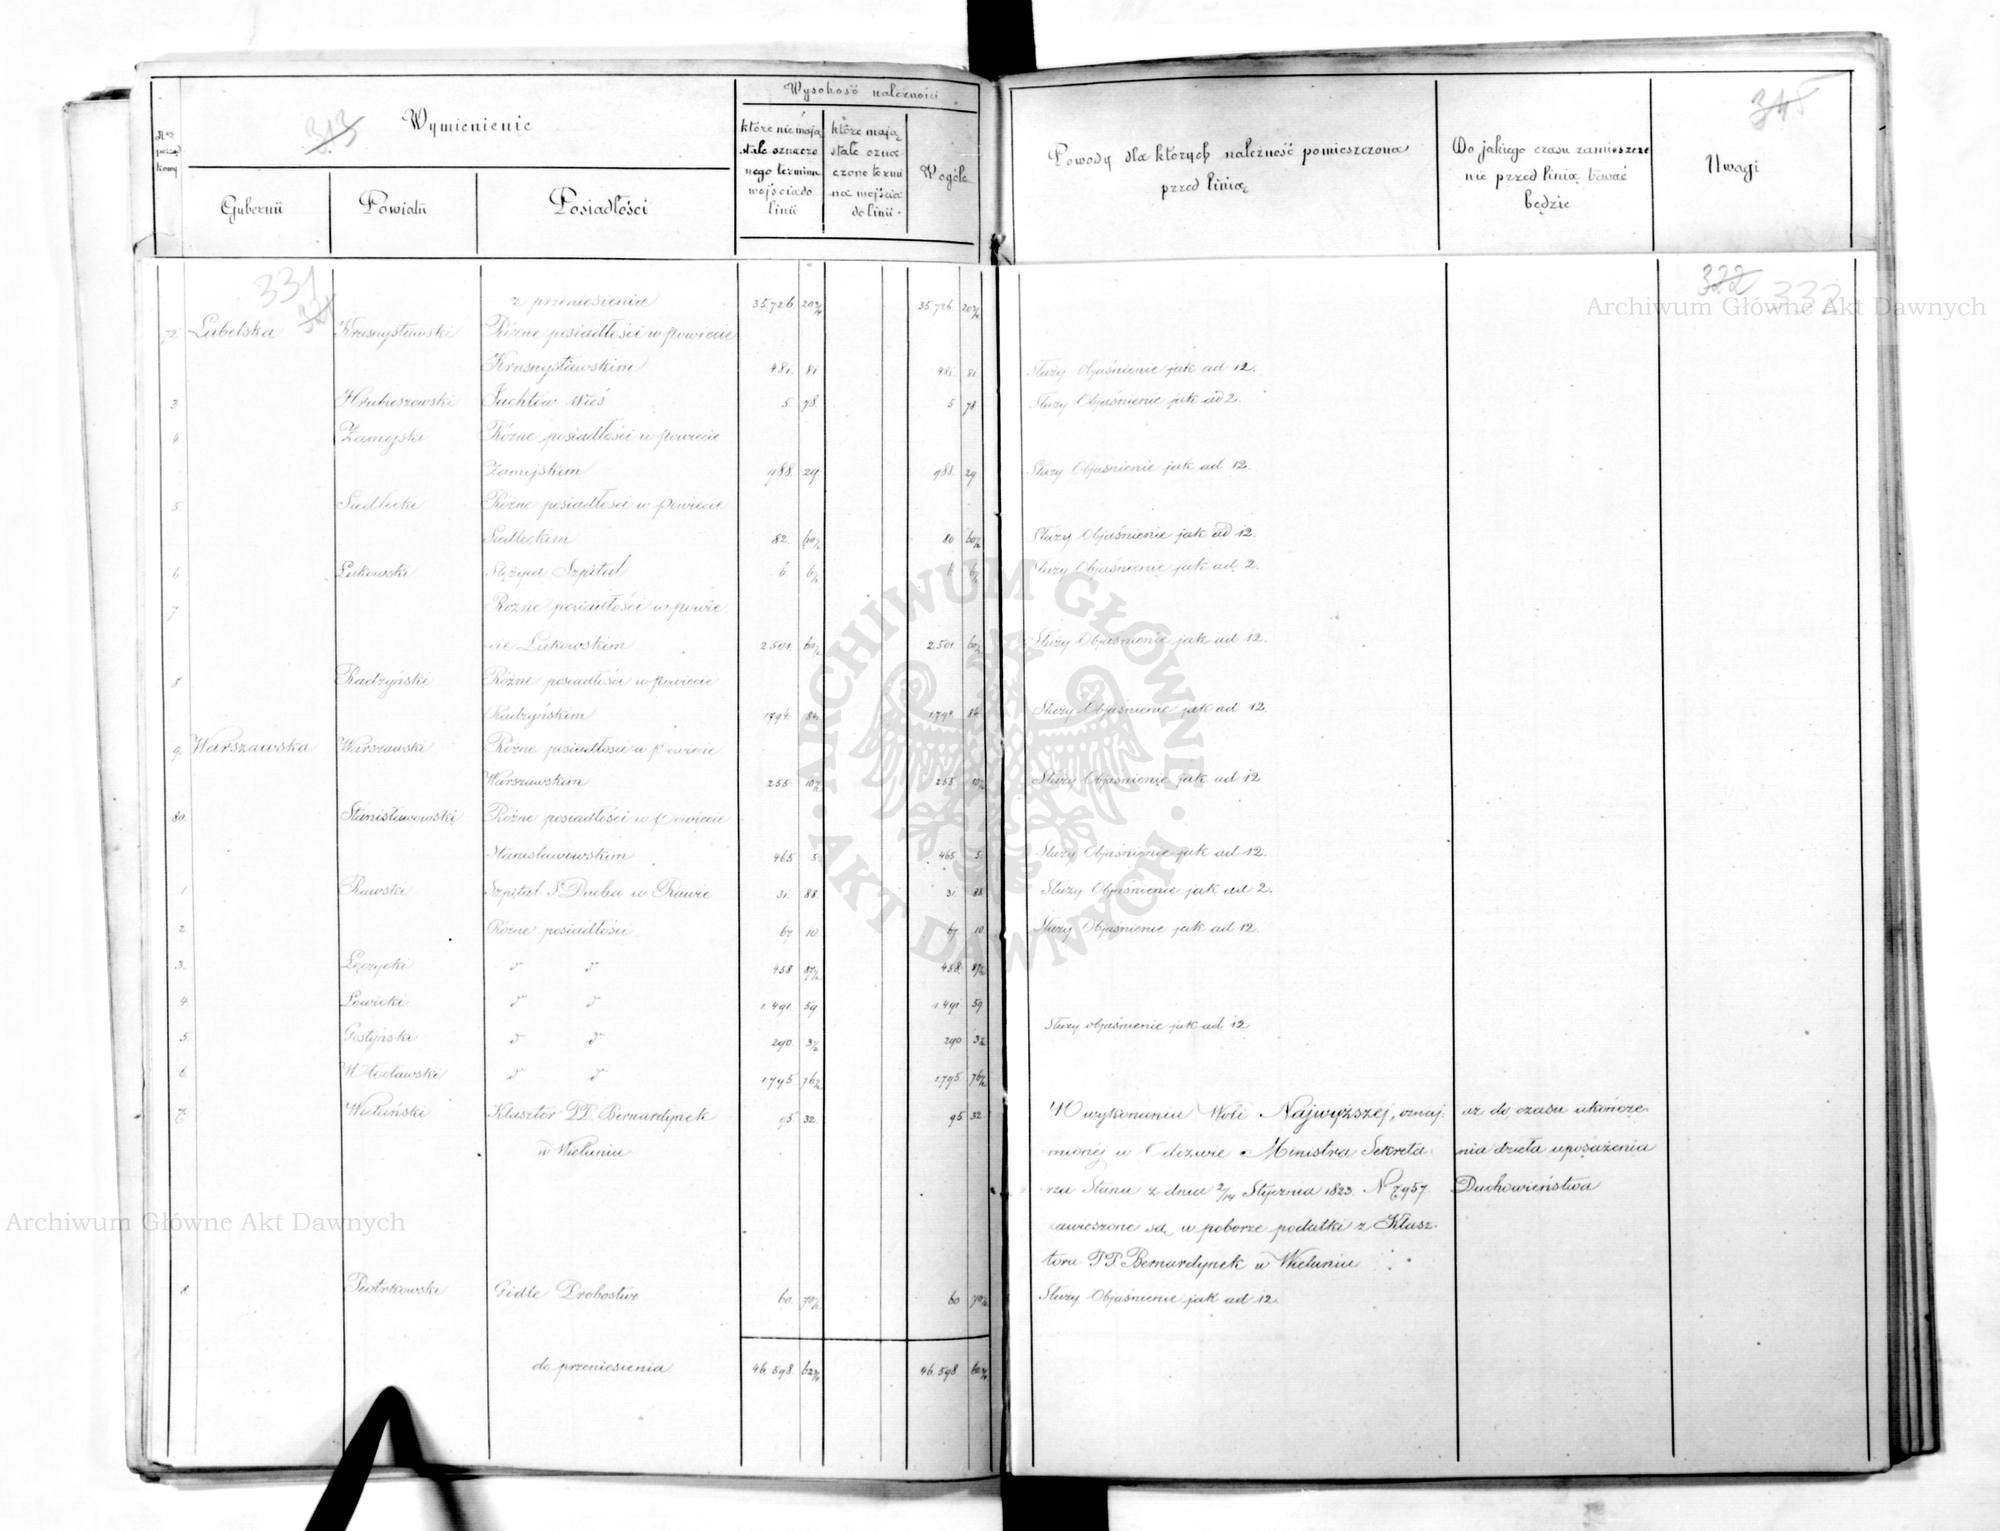 Wysokość należności
Nrz
porząd
kowy
313
Wymienienie
Gubernii
Powiatu
Posiadłości
które nie mają
stale oznaczo
nego terminu
wejścia do
linii
które mają
stale ozna
czone termi
na wejścia
do linii.
W ogóle
Powody dla których należność pomieszczona
przed linią
Do jakiego czasu zamieszcze
nie przed linią trwać
będzie
Uwagi
331
322 332
z przeniesienia 35.726 20 3/4 35.726 20 3/4
72 Lubelska Krasnystawski Różne posiadłości w powiecie
Krasnystawskim 481. 81 481. 81 Służy Objaśnienie jak ad 12.
3 Hrubieszowski wieś 5 78. 5 78 Służy Objaśnienie jak ad 2.
4 Zamojski Różne posiadłości w powiecie
Zamojskim 988. 29 988. 29 Służy Objaśnienie jak ad 12.
5 Siedlecki Różne posiadłości w powiecie
Siedleckim 82. 60 1/2 80 60 1/2 Służy Objaśnienie jak ad 12.
6 Łukowski Stężyca Szpital 6 6 1/2 6 6 1/2 Służy Objaśnienie jak ad 2.
7 Różne posiadłości w powie
cie Łukowskim 2501. 60 1/2 2501 60 1/2 Służy Objaśnienie jak ad 12.
8 Radzyński Różne posiadłości w powiecie
Radzyńskim 1794. 1794. Służy Objaśnienie jak ad 12.
9. Warszawska Warszawski Różne posiadłości w powiecie
Warszawskim 255 10 1/2 255 10 1/2 Służy Objaśnienie jak ad 12
80. Stanisławowski Różne posiadłości w powiecie
Stanisławowskim 465 5 465 5. Służy Objaśnienie jak ad 12.
1 Rawski Szpital S. Ducha w Rawie 31. 88. 31. 88 Służy Objaśnienie jak ad 2.
2. Różne posiadłości 67 10. 67 10 Służy Objaśnienie jak ad 12.
3. Łęczycki d° d° 458 87 1/2 458. 87 1/2
4. Łowicki d° d° 1491. 59 1491 59
Służy objaśnienie jak ad 12
5. Gostyński d° d° 290. 3 1/2 290 3 1/2
6. Włocławski d° d° 1795. 76 1/2 1795. 76 1/2
7. Wieluński Klasztor PP. Bernardynek 95 32. 95 32 W wykonaniu Woli Najwyższej, oznaj- aż do czasu ukończe-
w Wieluniu mionéj w Odezwie Ministra Sekreta- nia dzieła uposażenia
rza Stanu z dnia 2/14 Stycznia 1823. N 7957. Duchowieństwa
zawieszone są w poborze podatki z Klasz-
toru PP. Bernardynek w Wieluniu
8. Piotrkowski Gidle Probostwo 60. 70 1/2 60 70 1/2 Służy Objaśnienie jak ad 12.
do przeniesienia 46.598. 62 3/4 46.598 62 3/4
Archiwum Główne Akt Dawnych
ARCHIWUM GŁÓWNE AKT DAWNYCH
Archiwum Główne Akt Dawnych